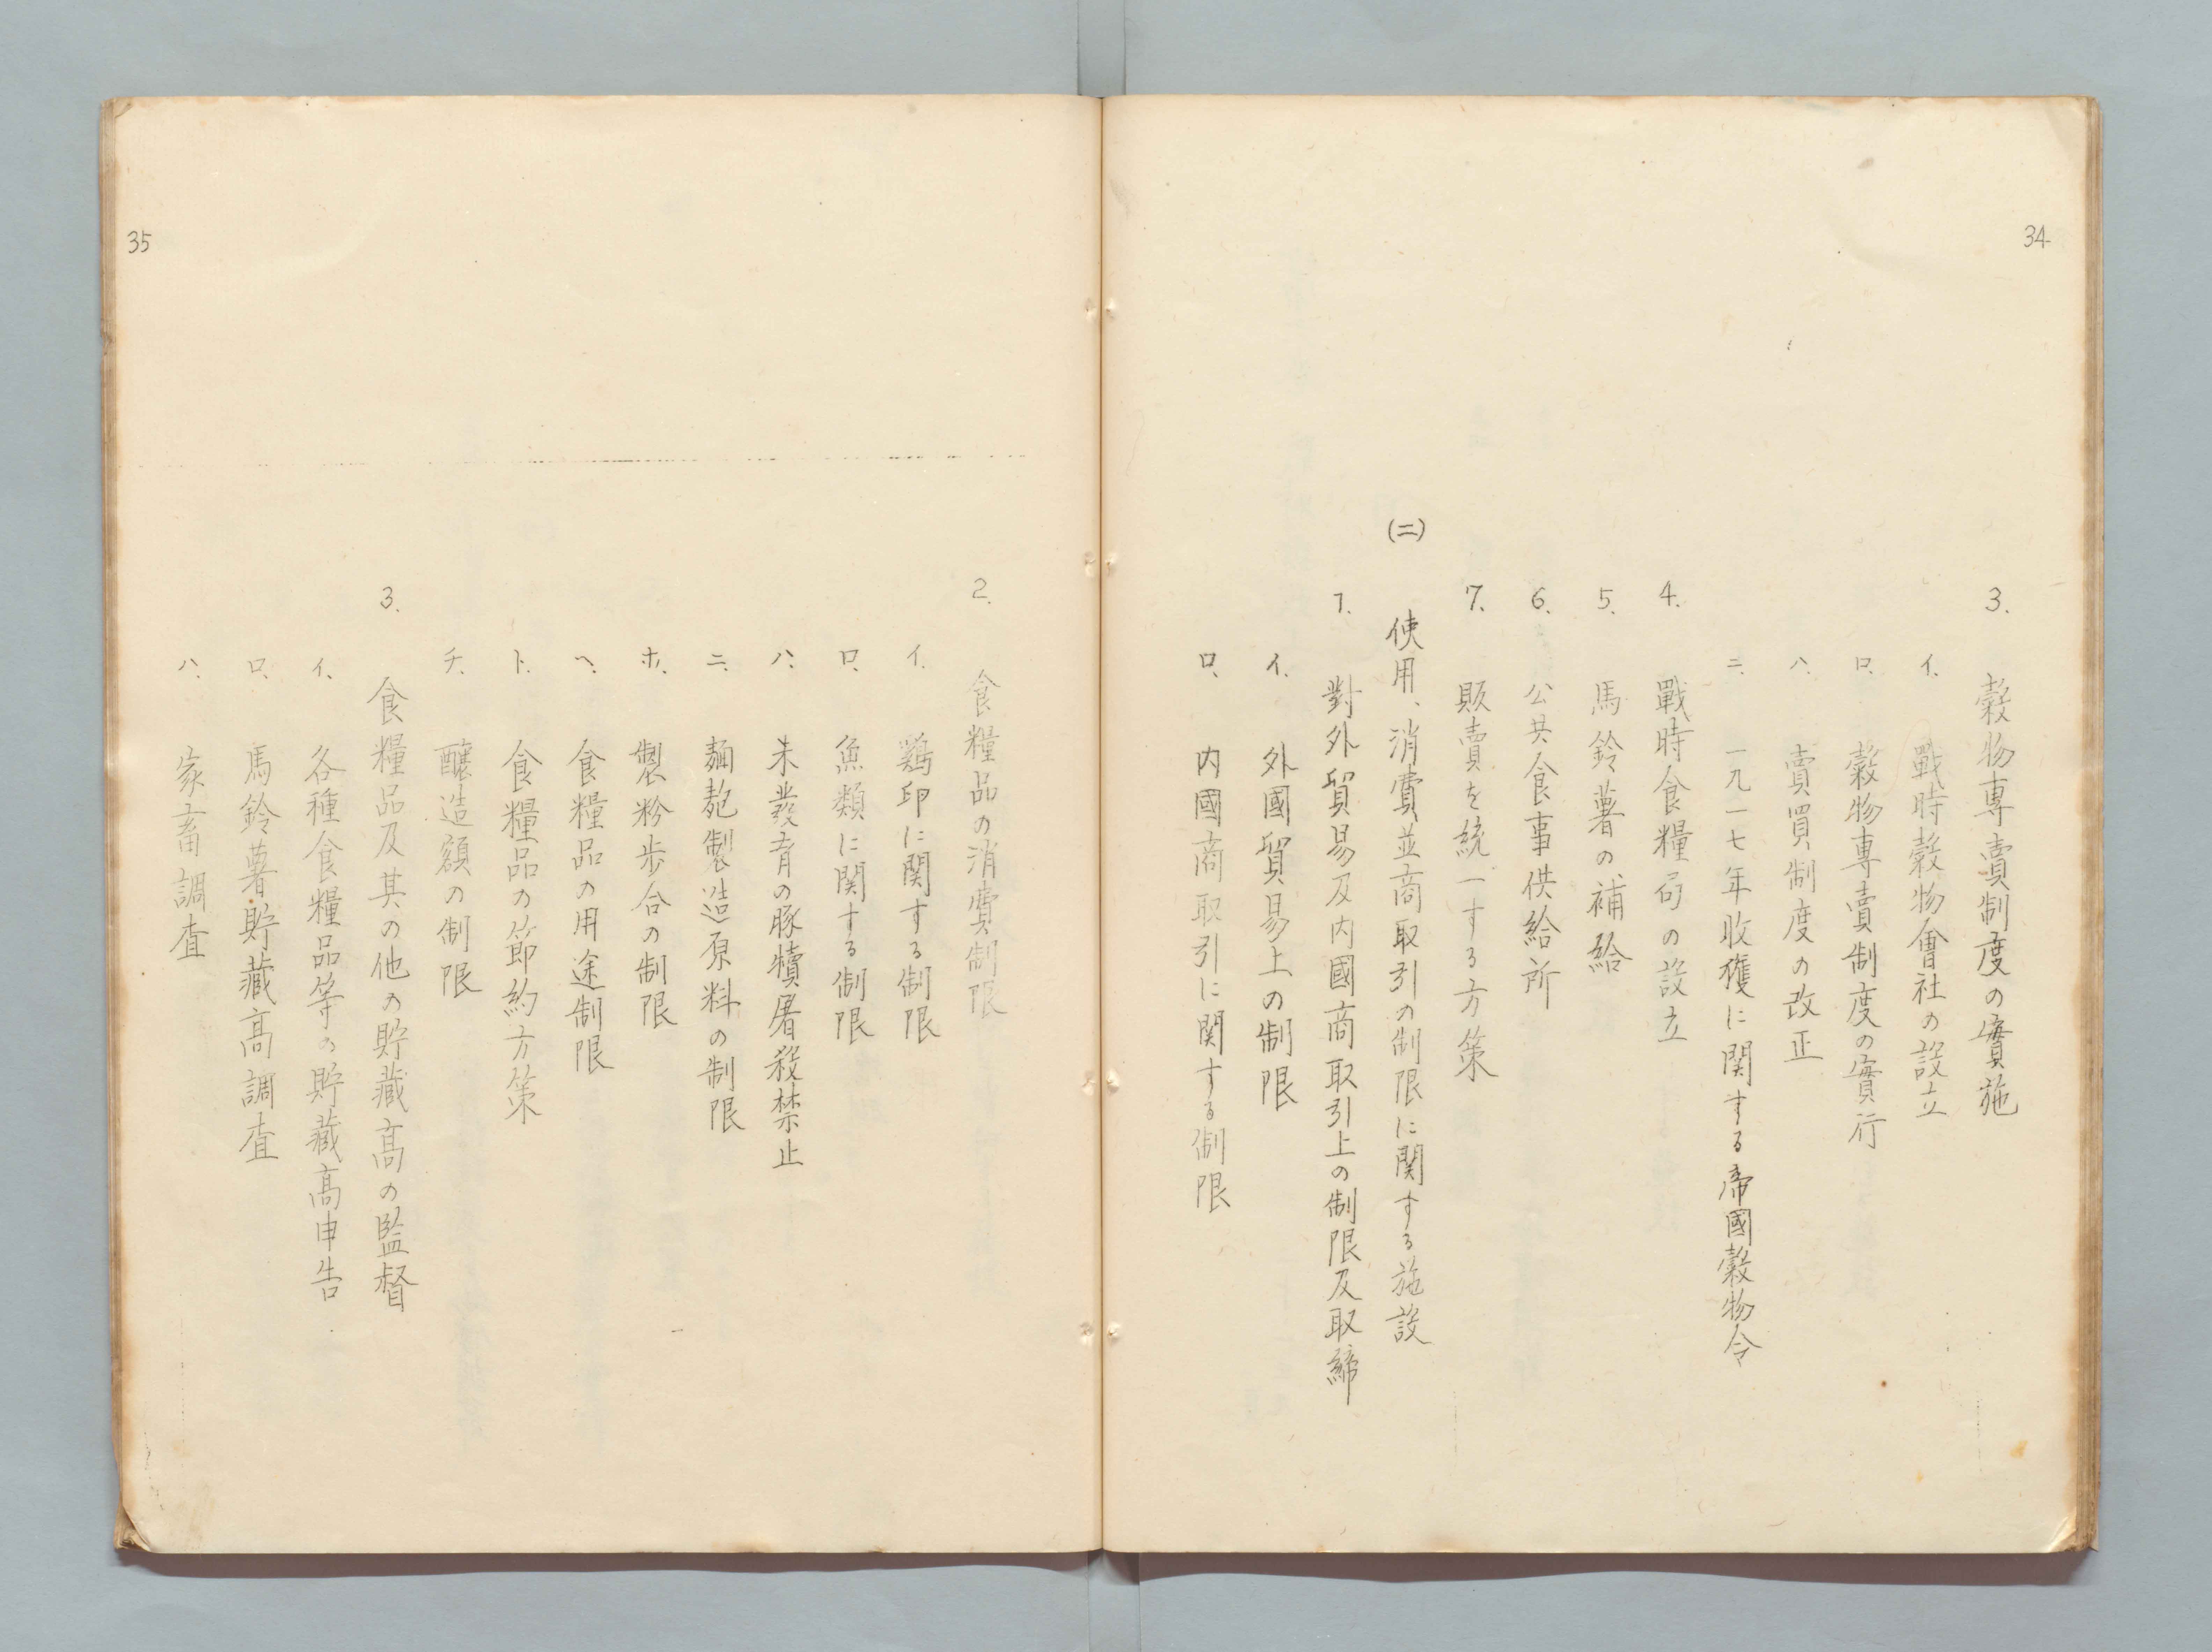 34
3. 穀物專賣制度の實施
イ. 戰時穀物會社の設立
ロ. 穀物專賣制度の實行
ハ. 賣買制度の改正
ニ. 一九一七年收獲に関する帝國穀物令
4. 戰時食糧局の設立
5. 馬鈴薯の補給
6. 公共食事供給所
7. 販賣を統一する方策
(二) 使用、消費並商取引の制限に関する施設
1. 對外貿易及内國商取引上の制限及取締
イ. 外國貿易上の制限
ロ. 内國商取引に関する制限
35
2. 食糧品の消費制限
イ. 鶏卵に関する制限
ロ. 魚類に関する制限
ハ. 未發育の豚犢屠殺禁止
ニ. 麺麭製造原料の制限
ホ. 製粉歩合の制限
ヘ. 食糧品の用途制限
ト. 食糧品の節約方策
チ. 釀造額の制限
3. 食糧品及其の他の貯藏高の監督
イ. 各種食糧品等の貯藏高申告
ロ. 馬鈴薯貯藏高調査
ハ. 家畜調査